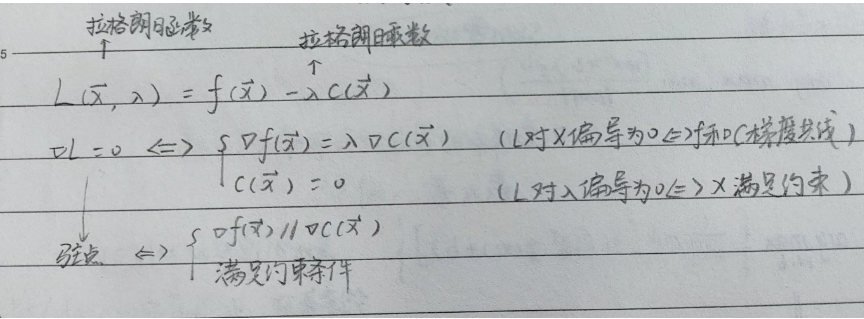 5
拉格朗日函数 拉格朗日乘数
↑ ↑
L(x⃗, λ) = f(x⃗) - λC(x⃗)
∇L = 0 <=> { ∇f(x⃗) = λ∇C(x⃗) (L对X偏导为0<=>f和∇C梯度共线)
C(x⃗) = 0 (L对λ偏导为0<=>X满足约束)
驻点 <=> { ∇f(x⃗) // ∇C(x⃗)
满足约束条件